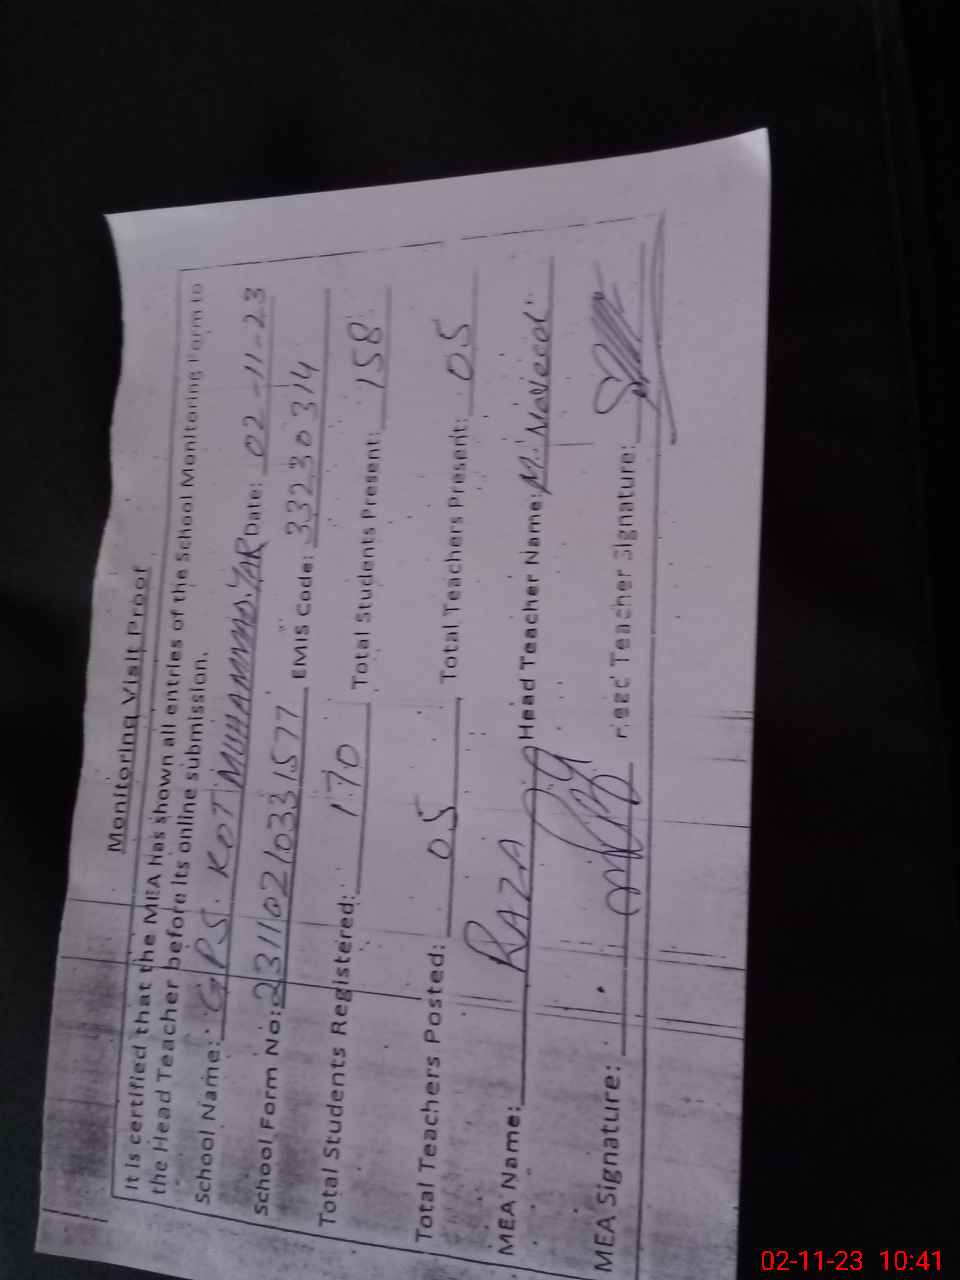 Monitoring Visit Proof
It is certified that the MEA has shown all entries of the School Monitoring Form to
the Head Teacher before its online submission.
School Name: GPS. KOT MUHAMMAD.YAR Date: 02-11-23
School Form No: 23110210331577 EMIS Code: 33230314
Total Students Registered: 170 Total Students Present: 158
Total Teachers Posted: 05 Total Teachers Present: 05
MEA Name: RAZA Head Teacher Name: M. Naveed
MEA Signature: Head Teacher Signature:
02-11-23 10:41